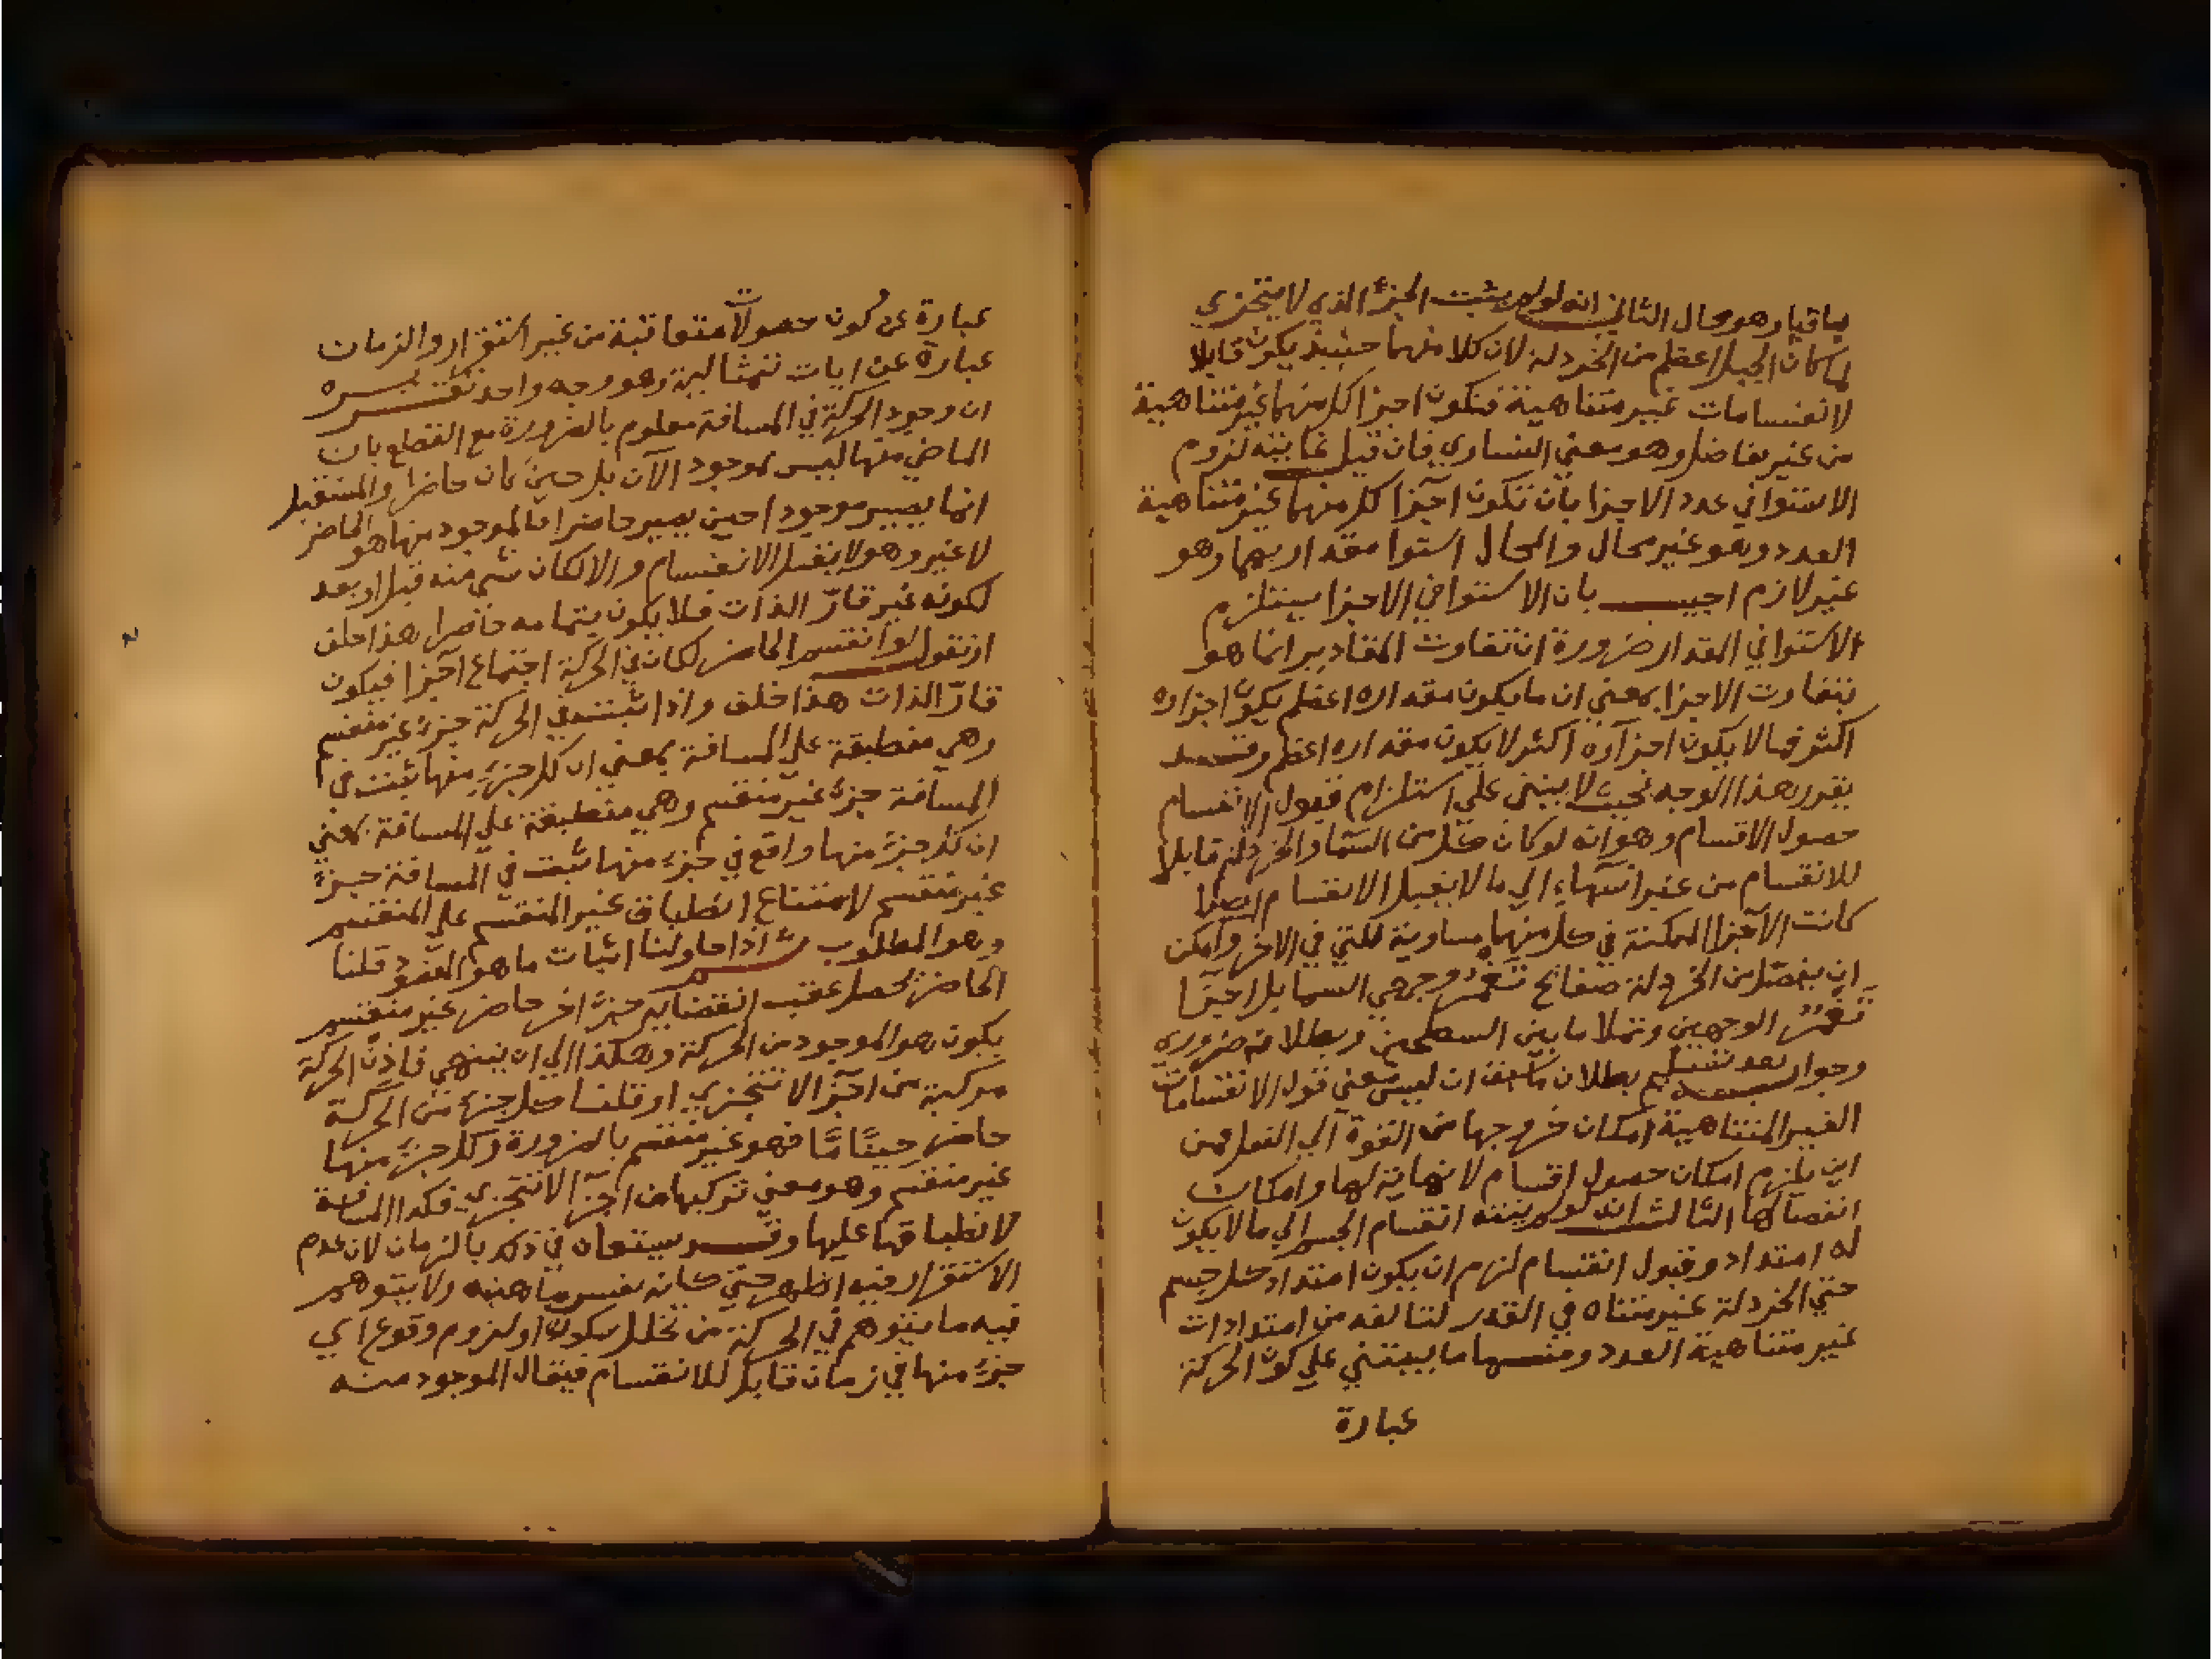 باقيا وهو محال الثاني انه لو لم يثبت الجزء الذي لا يتجزي
لما كان الجبل اعظم من الخردلة لان كلا منهما حينيذ يكون قابلا
لانقسامات غير متناهية فتكون اجزا كل منهما غير متناهية
من غير تفاضل وهو معني التساوي فان قيل غايته لزوم
الاستوا في عدد الاجزا بان تكون اجزا كل منهما غير متناهية
العدد وهو غير محال والمحال استوا مقداريهما وهو
غير لازم اجيب بان الاستوا في الاجزا يستلزم
الاستوا في المقدار ضرورة ان تفاوت المقادير انما هو
بتفاوت الاجزا بمعني ان ما يكون مقداره اعظم يكون اجزاوه
اكثر فما لا يكون اجزاوه اكثر لا يكون مقداره اعظم وقد
يقرر هذا الوجه بحيث لا يبتني علي استلزام قبول الانقسام
حصول الاقسام وهو انه لو كان كل من السما والخردلة قابلا
للانقسام من غير انتهاء الي ما لا يقبل الانقسام اصلا
كانت الاجزا الممكنة في كل منهما مساوية للتي في الاخر وامكن
ان ينفصل من الخردلة صفائح تغمر وجهي السما بل اجزا
تغمر الوجهين وتملا ما بين السطحين وبطلانه ضروري
وجوابه بعد تسليم بطلان ان ليس معني قبول الانقسامات
الغير المتناهية امكان خروجها من القوة الي الفعل فمن
اين يلزم امكان حصول اقسام لا نهاية لها وامكان
انفصالها الثالث انه لو لم ينته انقسام الجسم الي ما لا يكون
له امتداد وقبول انقسام لزم ان يكون امتداد كل جسم
حتي الخردلة غير متناه في القدر لتالفه من امتدادات
غير متناهية العدد ومنها ما يبتني علي كون الحركة
عبارة
عبارة عن كون حصولات متعاقبة من غير استقرار والزمان
عبارة عن انات متتالية وهو وجه واحد تقريره
ان وجود الحركة في المسافة معلوم بالضرورة مع القطع بان
الماضي منها ليس بموجود الآن بل حين كان حاضرا والمستقبل
انما يصير موجودا حين يصير حاضرا فالموجود منها هو الحاضر
لا غير وهو لا يقبل الانقسام والا لكان شي منه قبل او بعد
لكونه غير قارّ الذات فلا يكون بتمامه حاضرا هذا خلف
او نقول لو انقسم الحاضر لكان في الحركة اجتماع اجزا فيكون
قارّ الذات هذا خلف واذا ثبت في الحركة جزء غير منقسم
وهي منطبقة علي المسافة بمعني ان كل جزء منها ثبت في
المسافة جزء غير منقسم وهي منطبقة علي المسافة بمعني
ان كل جزء منها واقع في جزء منها ثبت في المسافة جزء
غير منقسم لامتناع انطباق غير المنقسم علي المنقسم
وهو المطلوب ثم اذا حاولنا اثبات ما هو المقصود قلنا
الحاضر يحصل عقيب انقضايه جزء اخر حاضر غير منقسم
يكون هو الموجود من الحركة وهكذا الي ان ينتهي فاذن الحركة
مركبة من اجزا لا تتجزي او قلنا كل جزء من الحركة
حاضر حينًا مّا فهو غير منقسم بالضرورة وكل جزء منها
غير منقسم وهو معني تركبها من اجزا لا تتجزي فكذا المسافة
لانطباقها عليها وقد يستعان في ذلك بالزمان لان عدم
الاستقرار فيه اظهر حتي كانه نفس ماهيته ولا يتوهم
فيه ما يتوهم في الحركة من تخلل سكون او لزوم وقوع اي
جزء منها في زمان قابل للانقسام فيقال الموجود منه